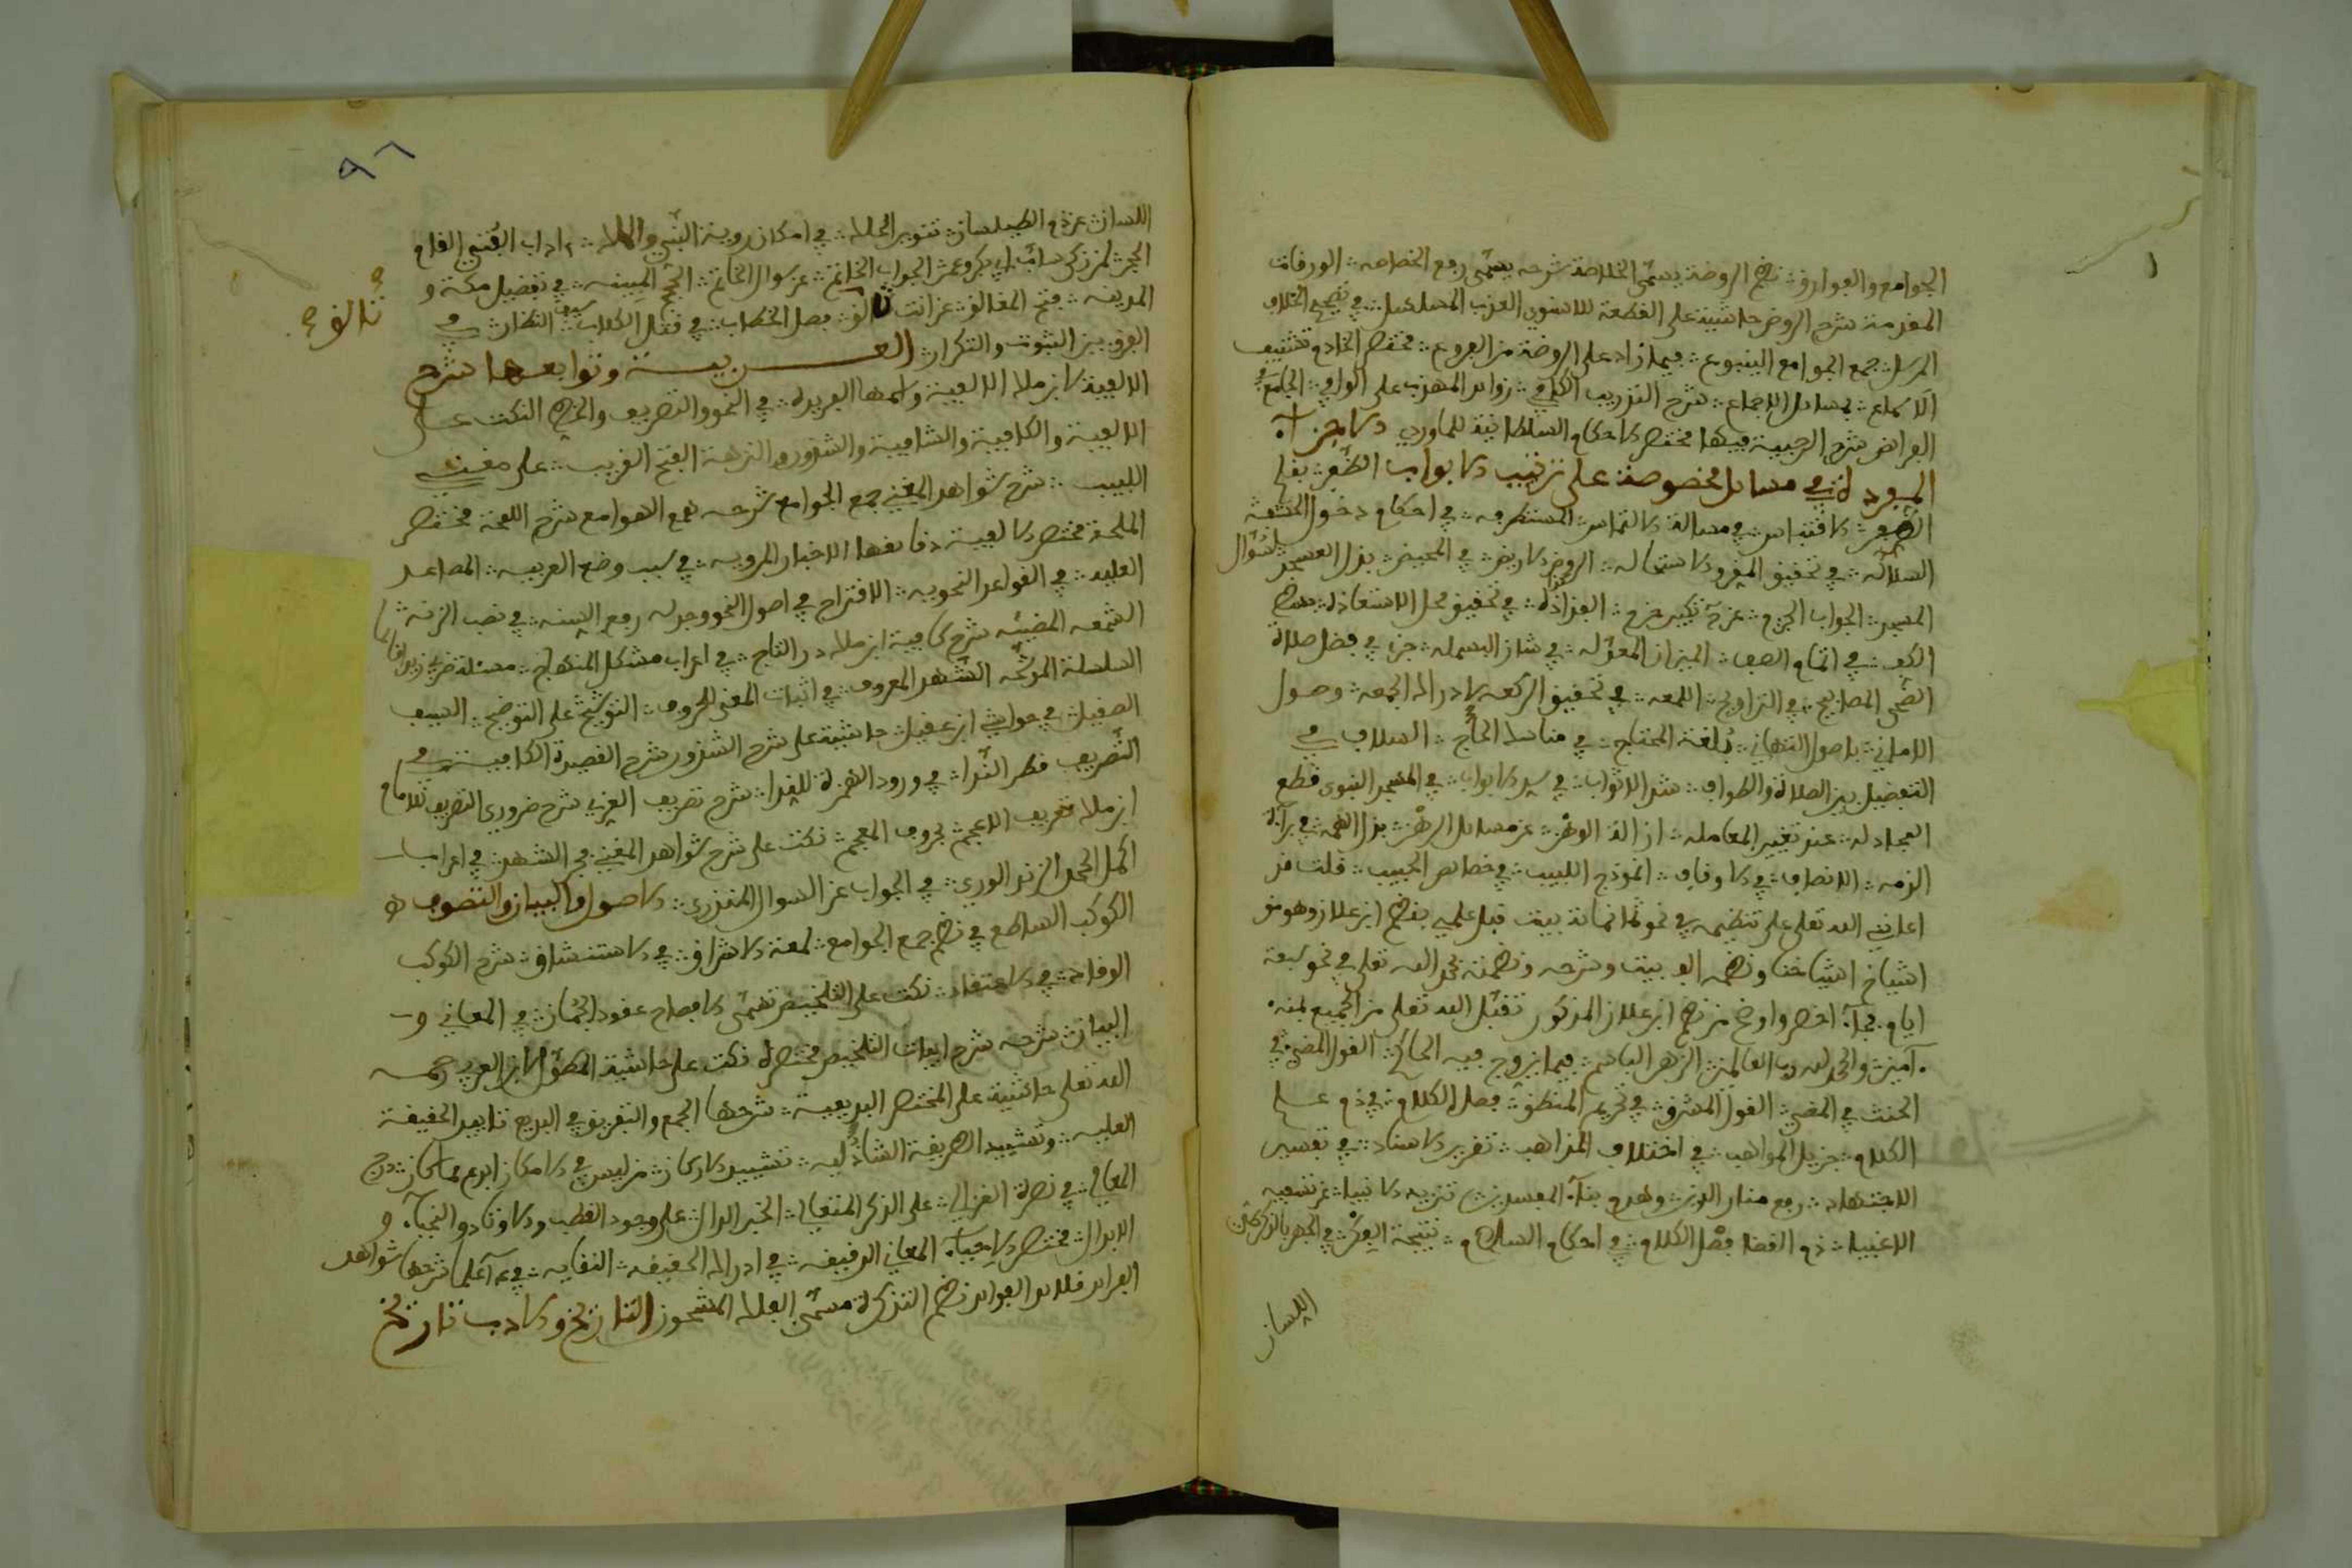 الجوامع والفوارق نظم الروضة يسمى الخلاصة شرحه يسمى رفع الخصاصه الورقات
المقدمة شرح الروض حاشية على القطعة للاسنوي العذب المسلسل في تصحيح الخلاف
المرسل جمع الجوامع الينبوع فيما زاد على الروضة من الفروع مختصر الخادم تشنيف
الاسماع بمسائل الاجماع شرح التدريب الكافي زوائد المهذب على الوافي الجامع في
الفرائض شرح الرحبية فيها مختصر الاحكام السلطانية للماوردي الاجزآء
المفردة في مسائل مخصوصة على ترتيب الابواب الظفر بقلم
الظفر الاقتناص في مسالة التماص المستطرفه في احكام دخول الحشفه
السلالة في تحقيق المقر والاستحاله الروض الاريض في المحيض بذل العسجد لسؤال
المسجد الجواب الحزم عن حديث التكبير جزم القذاذة في تحقيق محل الاستعاذة ميزان
الكف في اتمام الصف الميزان المعدله في شان البسمله جزء في فضل صلاة
الضحى المصابيح في التراويح اللمعه في تحقيق الركعه لادراك الجمعه وصول
الاماني باصول التهاني بلغة المحتاج في مناسك الحاج السلاف في
التفضيل بين الصلاة والطواف شد الاثواب في سد الابواب في المسجد النبوي قطع
المجادله عند تغيير المعامله ازالة الوهن عن مسالة الرهن بذل الهمه في براءة
الذمه الانصاف في الاوقاف انموذج اللبيب في خصائص الحبيب قلت قد
اعانني الله تعلى على تنظيمه في نحو ثمانمائة بيت قبل علمي بنظم ابن علان وهو من
اشياخ اشياخنا ونظمه الف بيت وشرحه ونظمته بحمد الله تعلى في نحو سبعة
ايام فجاء اخصر واوضح من نظم ابن علان المذكور تقبل الله تعلى من الجميع بمنه
آمين والحمد لله رب العالمين الزهر الباسم فيما يزوج فيه الحاكم القول المضي في
الحنث في المضي القول المشرق في تحريم المنطق فصل الكلام في ذم علم
الكلام جزيل المواهب في اختلاف المذاهب تقرير الاسناد في تفسير
الاجتهاد رفع منار الدين وهدم بناء المفسدين تنزيه الانبيا عن تسفيه
الاغبيا ذم القضا فصل الكلام في احكام السلام نتيجة الفكر في الجهر بالذكر طي
اللسان
٩٦
اللسان عن ذم الطيلسان تنوير الحلك في امكان روية النبي والملك اداب الفتيا القام
الحجر لمن زكى ساب ابي بكر وعمر الجواب الحاتم عن سوال الخاتم الحجج المبينه في تفضيل مكة و
المدينه فتح المغالق عن انت تالق فصل الخطاب في قتل الكلاب سيف النظار في
تالق صح
الفرق بين الثبوت والتكرار العربيـة وتوابعها شرح
الالفية لابن مالك الالفية واسمها الفريدة في النحو والتصريف والخط النكت على
الالفية والكافية والشافية والشذور والنزهة الفتح القريب على مغني
اللبيب شرح شواهد المغني جمع الجوامع شرحه همع الهوامع شرح اللمحة مختصر
الملحة مختصر الالفية ودقائقها الاخبار المرويه في سبب وضع العربيه المصاعد
العليه في القواعد النحويه الاقتراح في اصول النحو وجدله رفع السنه في نصب الزنه
الشمعه المضيئه شرح كافية ابن مالك در التاج في اعراب مشكل المنهاج مسئلة ضربي زيدا قائما
السلسلة الموشحه الشهد المعروف في اثبات المعنى للحروف التوشيح على التوضيح السيف
الصقيل في حواشي ابن عقيل حاشية على شرح الشذور شرح القصيدة الكافية في
التصريف قطر الندا في ورود الهمزة للندا شرح تصريف العزي شرح ضروري التصريف للامام
ابن مالك تعريف الاعجم بحروف المعجم نكت على شرح شواهد المغني فجر الثمد في اعراب
اكمل الحمد الزند الوري في الجواب عن السوال السكندري الاصول والبيان والتصوف
الكوكب الساطع في نظم جمع الجوامع لمعة الاشراق في الاشتقاق شرح الكوكب
الوقاد في الاعتقاد نكت على التلخيص تسمى الافصاح عقود الجمان في المعاني و
البيان شرحه شرح ابيات التلخيص مختصرة نكت على حاشية المطول لابن الغرس رحمه
الله تعلى حاشية على المختصر البديعية شرحها الجمع والتفريق في البديع تاييد الحقيقة
العليه وتشييد الطريقة الشاذليه تشييد الاركان من ليس في الامكان ابدع مما كان درج
المعالي في نصرة الغزالي على المنكر المتغالي الخبر الدال على وجود القطب والاوتاد والنجباء و
الابدال مختصر الاحياء المعاني الدقيقه في ادراك الحقيقه النقايه في ١٤ علما شرحها شواهد
الفرائد قلائد الفوائد نظم التذكرة مسمى الفلك المشحون التاريخ والادب تاريخ